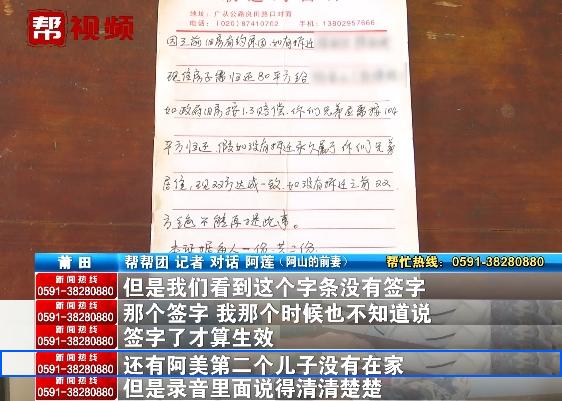 帮视频
地址：广从公路良田路口对面
电话：(020)87410702 手机：13802957666
因之前旧房有约原因,如有拆迁
现住房子需归还80平方给
如政府旧房按1.3赔偿,你们兄弟还需按104
平方归还,假如没有拆迁永久属于你们兄弟
居住,现双方达成一致,如没有拆迁之前双
方绝不能再提此事。
一份,共二份
莆田 帮帮团 记者 对话 阿莲（阿山的前妻） 帮忙热线：0591-38280880
新闻热线 0591-38280880 但是我们看到这个字条没有签字
新闻热线 0591-38280880 那个签字 我那个时候也不知道说
新闻热线 0591-38280880 签字了才算生效
新闻热线 0591-38280880 还有阿美第二个儿子没有在家
新闻热线 0591-38280880 但是录音里面说得清清楚楚